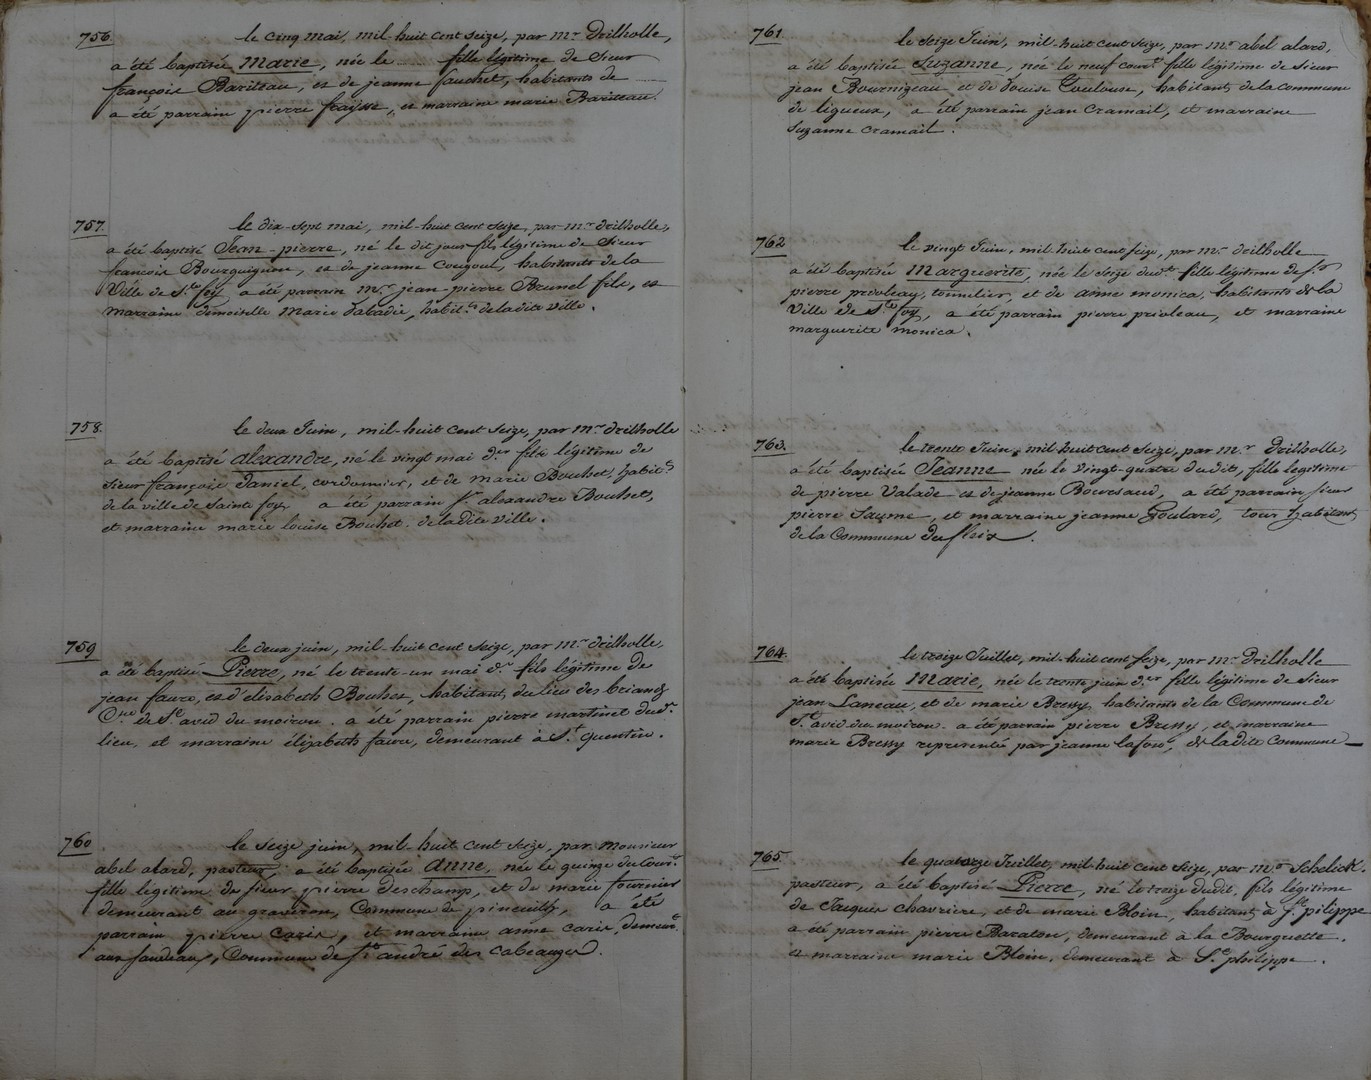 756 le cinq mai, mil-huit cent seize, par mr. Drilholle,
a été baptisée Marie, née le fille légitime de Sieur
françois Bariteau, et de jeanne fauchet, habitants de
a été parrain pierre fraysse, et marraine marie Bariteau.
757 le dix-sept mai, mil-huit cent seize, par mr. drilholle,
a été baptisé Jean-pierre, né le dit jour fils légitime de Sieur
francois Bourguignon, et de jeanne cougout, habitants de la
Ville de Ste. foy a été parrain mr. jean-pierre Brunel fils, et
marraine demoiselle Marie Labadie, habitte. de la dite Ville.
758. le deux Juin, mil-huit cent seize, par mr. drilholle
a été baptisé alexandre, né le vingt mai der. fils légitime de
Sieur françois daniel, cordonnier, et de marie Bouhet, habits.
de la ville de Sainte foy a été parrain sr. alexandre Bouhet,
et marraine marie louise Bouhet. de la dite Ville.
759 le deux juin, mil-huit cent seize, par mr. drilholle,
a été baptisé Pierre, né le trente-un mai dr. fils légitime de
jean faure, et d'elisabeth Bouhet, habitant, du lieu des briands
Cne. de St. avid du moiron. a été parrain pierre martinet dudt.
lieu, et marraine élizabeth faure, demeurant à St. quentin.
760. le seize juin, mil-huit cent seize, par monsieur
abel alard, pasteur, a été baptisée anne, née le quinze du Courrt.
fille légitime du sieur pierre deschamp, et de marie fournier
demeurant au graviron, Commune de pineuilh, a été
parrain pierre Caris, et marraine anne caris, demeurt.
aux faudeaux, Commune de St. andré des cabeauzes.
761. le seize Juin, mil-huit cent seize, par mr. abel alard,
a été baptisée Suzanne, née le neuf courrt. fille légitime de sieur
jean Bournizeau et de Louise Toulouse, habitants de la commune
de ligueux, a été parrain jean cramail, et marraine
suzanne cramail.
762 le vingt Juin, mil-huit cent seize, par mr. drilholle
a été baptisée Marguerite, née le seize dudt. fille légitime de sr.
pierre privleau, tonnelier, et de anne monica, habitants de la
Ville de Ste. foy, a été parrain pierre prioleau, et marraine
marguerite monica.
763. le trente Juin, mil-huit cent Seize, par mr. Drilholle,
a été baptisée Jeanne née le vingt-quatre dudit, fille legitime
de pierre Valade et de jeanne Boursaud, a été parrain sieur
pierre Sayme, et marraine jeanne Goulard, tous habitans
de la Commune du fleix.
764. le treize Juillet, mil-huit cent seize, par mr. Drilholle
a été baptisée Marie, née le trente juin der. fille légitime de sieur
jean Laneau, et de marie Bressy, habitants de la Commune de
St. avid du moiron. a été parrain pierre Bressy, et marraine
marie Bressy representé par jeanne lafon, de la dite Commune
765. le quatorze Juillet, mil-huit cent seize, par mr. Schelick.
pasteur, a été baptisé Pierre, né le treize dudit, fils légitime
de Jacques Chavriere, et de marie Bloin, habitants à St. pilippe
a été parrain pierre Baraton, demeurant à la Bourguette,
et marraine marie Bloin, demeurant à St. philippe.